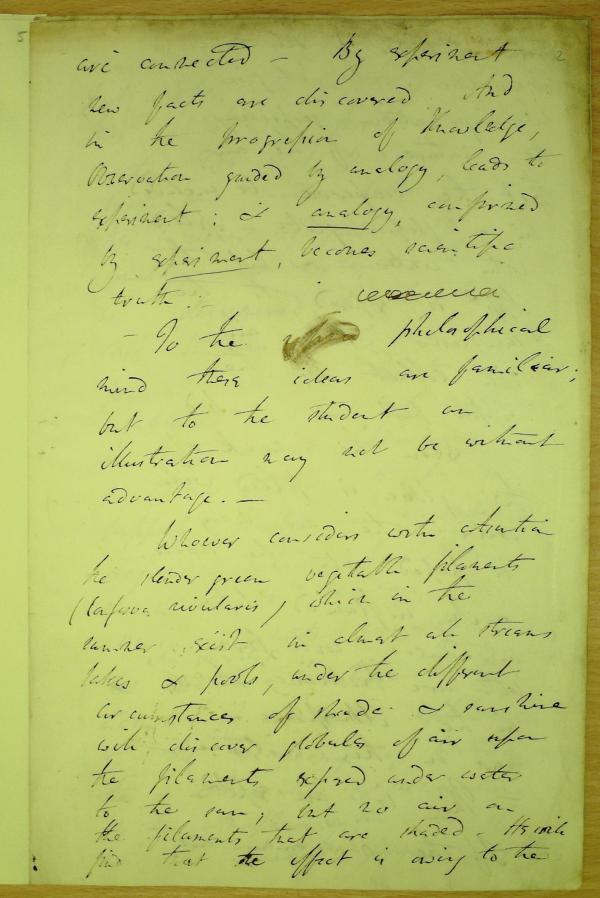 are connected - By experiment
new facts are discovered And
in the progression of Knowledge,
Observation guided by analogy, leads to
experiment; & analogy, confirmed
by experiment, becomes scientific
truth :-
- To the philosophical
mind these ideas are familiar;
but to the student an
illustration may not be without
advantage. -
Whoever considers with attention
the slender green vegetable filaments
(Conferva rivularis) which in the
summer exist in almost all streams
lakes & pools, under the different
circumstances of shade & sunshine
will discover globules of air upon
the filaments exposed under water
to the sun; but no air on
the filaments that are shaded - He will
find that the effect is owing to the
2
5